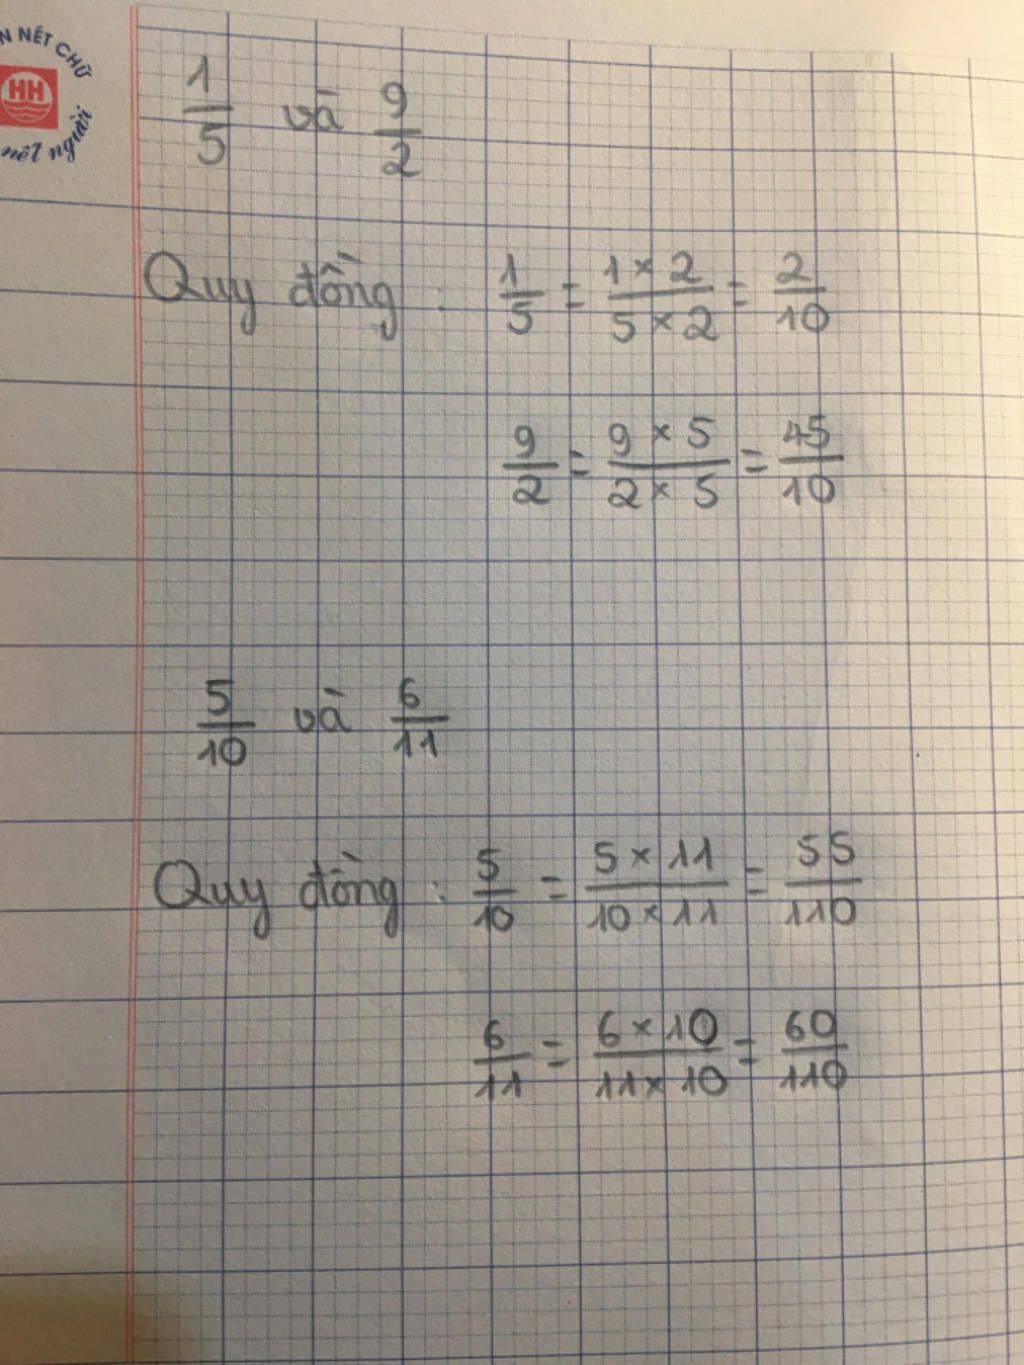 N NÉT CHỮ
HH
nết người
1/5 và 9/2
Quy đồng : 1/5 = 1 × 2 / 5 × 2 = 2/10
9/2 = 9 × 5 / 2 × 5 = 45/10
5/10 và 6/11
Quy đồng : 5/10 = 5 × 11 / 10 × 11 = 55/110
6/11 = 6 × 10 / 11 × 10 = 60/110